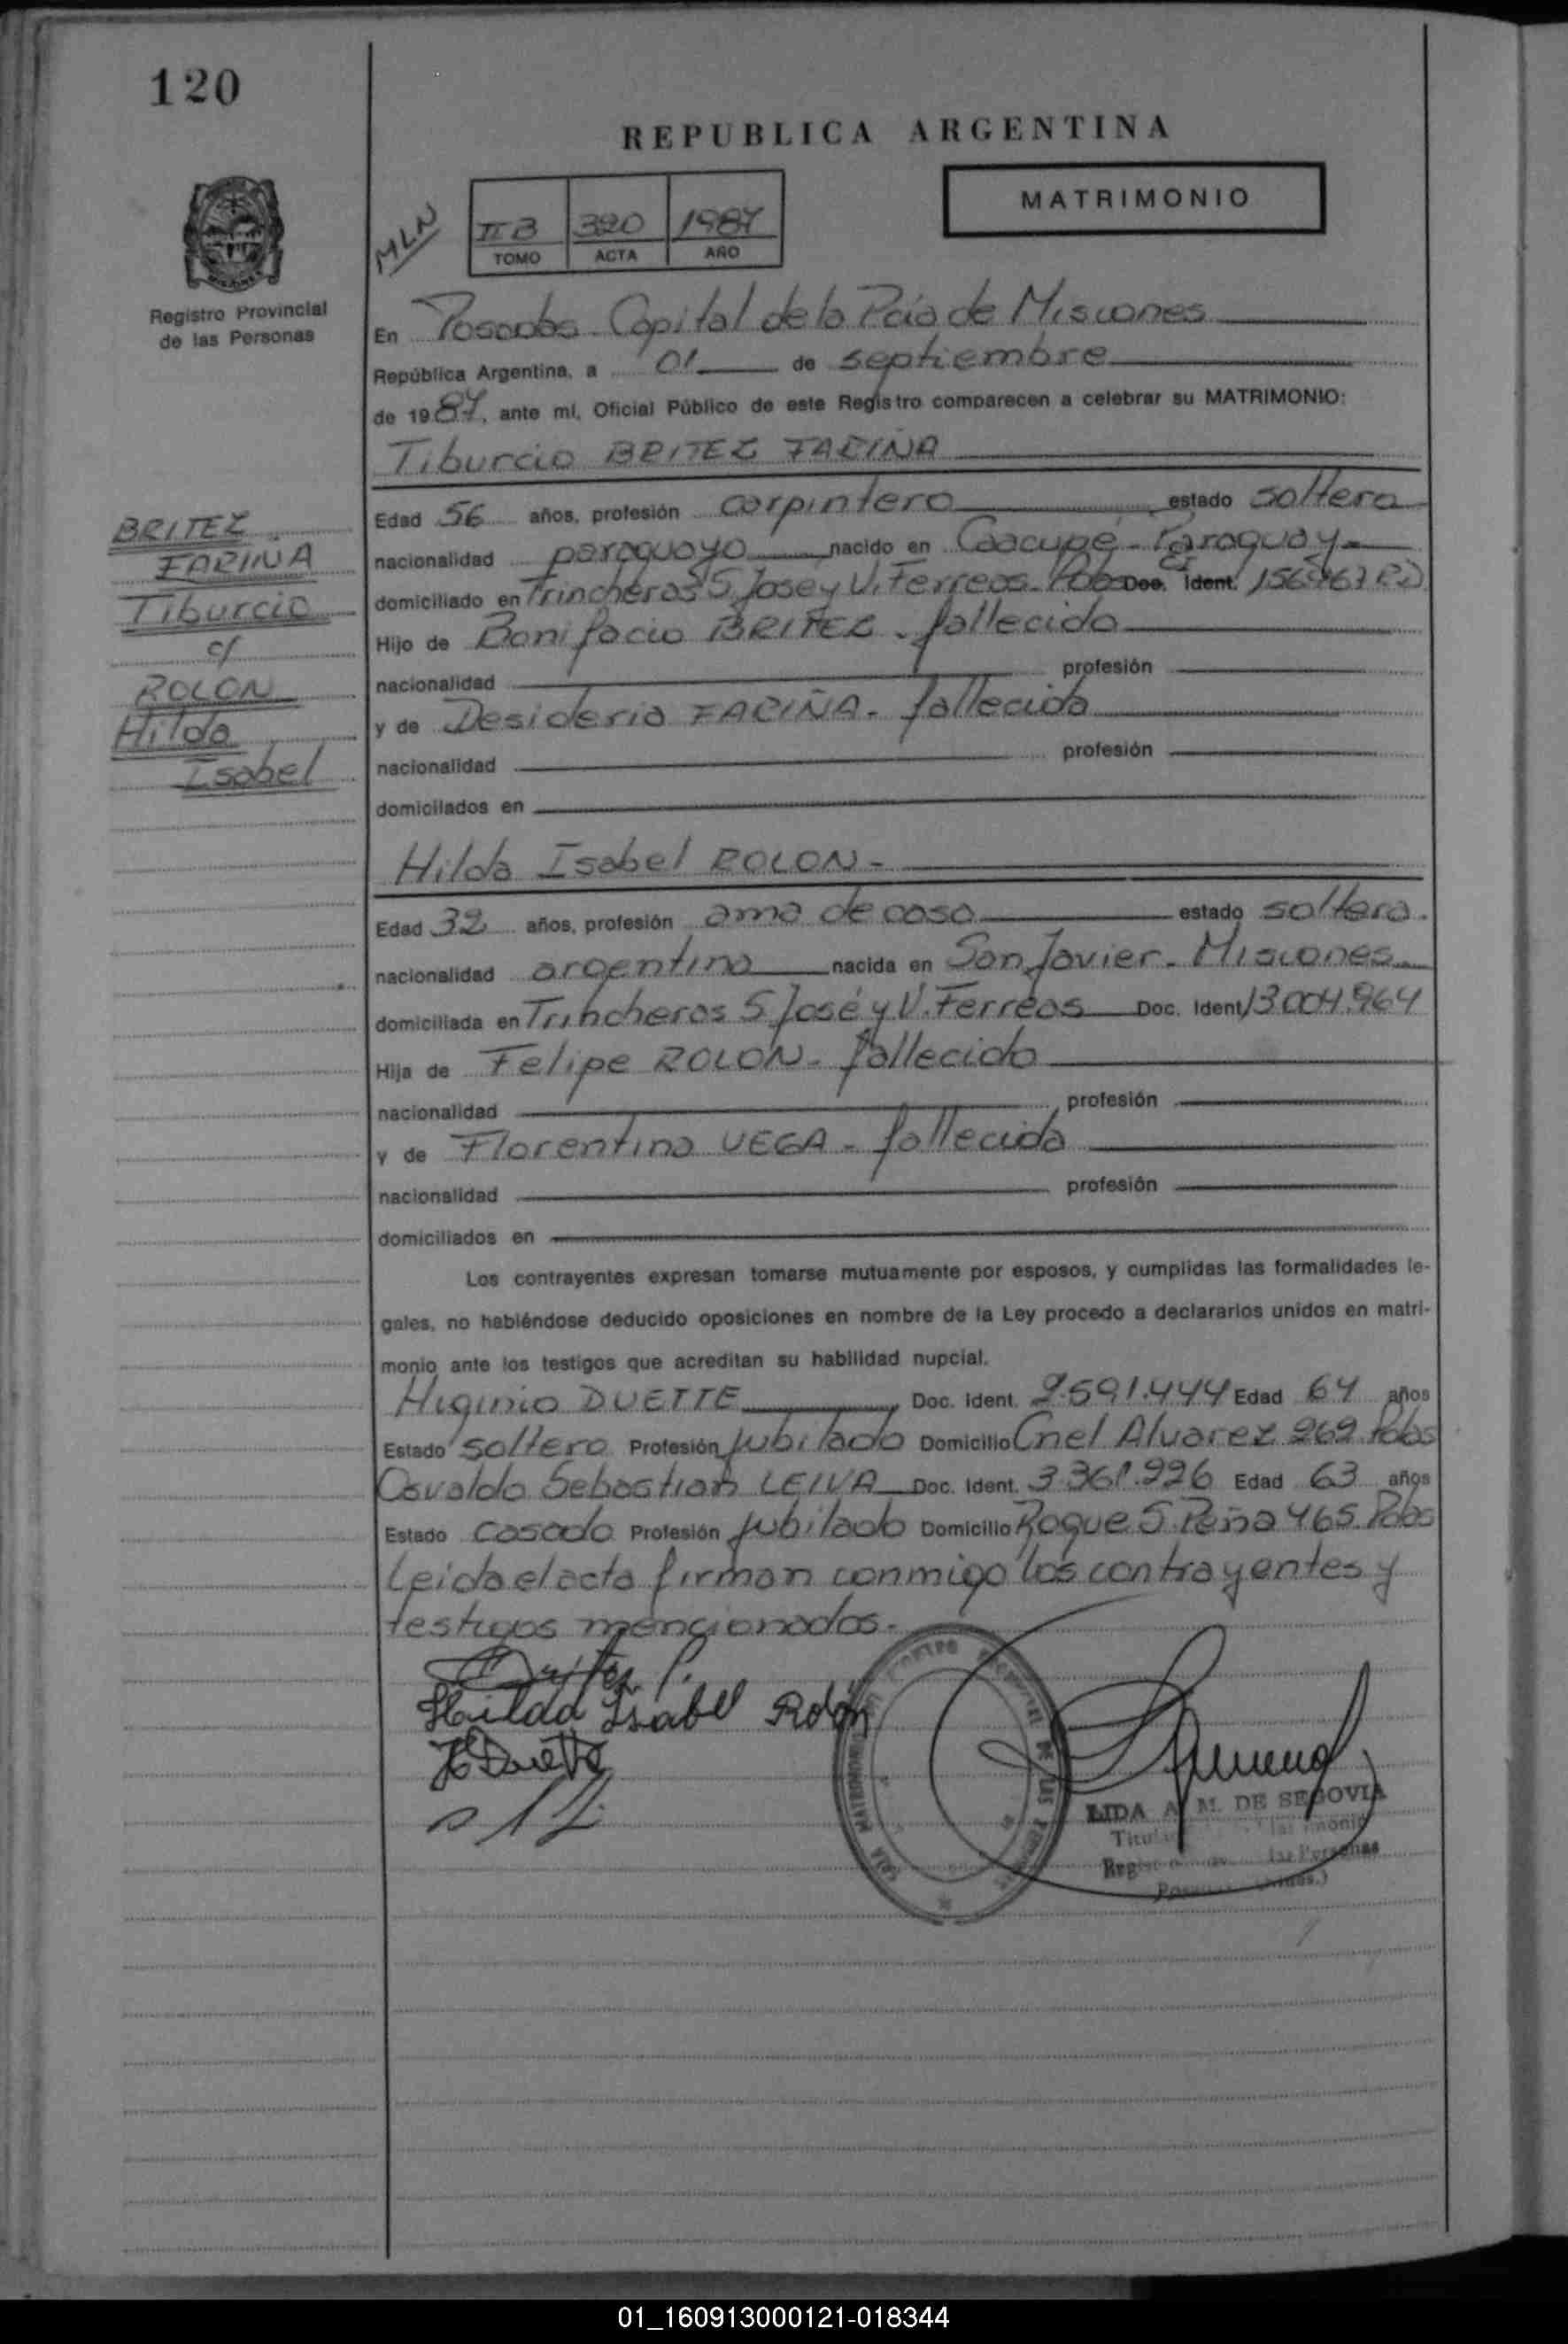 120
REPUBLICA ARGENTINA
MATRIMONIO
MLN
II B 320 1987
TOMO ACTA AÑO
Registro Provincial
de las Personas
En Posadas Capital de la Pcia de Misiones
República Argentina, a 01 de septiembre
de 1987, ante mí, Oficial Público de este Registro comparecen a celebrar su MATRIMONIO:
Tiburcio BRITEZ FARIÑA
BRITEZ
FARIÑA
Tiburcio
c/
ROLON
Hilda
Isabel
Edad 56 años, profesión carpintero estado soltero
nacionalidad paraguayo nacido en Caacupé - Paraguay -
domiciliado en Trincheras S. José y V. Ferreas - Pdas Doc. Ident.
Hijo de Bonifacio BRITEZ - fallecido
nacionalidad profesión
y de Desideria FARIÑA - fallecida
nacionalidad profesión
domiciliados en
Hilda Isabel ROLON -
Edad 32 años, profesión ama de casa estado soltera
nacionalidad argentina nacida en San Javier - Misiones
domiciliada en Trincheras S José y V. Ferreas Doc. Ident. 13.004.964
Hija de Felipe ROLON - fallecido
nacionalidad profesión
y de Florentina VEGA - fallecida
nacionalidad profesión
domiciliados en
Los contrayentes expresan tomarse mutuamente por esposos, y cumplidas las formalidades le-
gales, no habiéndose deducido oposiciones en nombre de la Ley procedo a declararlos unidos en matri-
monio ante los testigos que acreditan su habilidad nupcial.
Higinio DUETTE Doc. Ident. 2.591.444 Edad 64 años
Estado soltero Profesión jubilado Domicilio Cnel Alvarez 269 Pdas
Osvaldo Sebastian LEIVA Doc. Ident. 3.361.226 Edad 63 años
Estado casado Profesión jubilado Domicilio Roque S. Peña 465 Pdas
Leida el acta firman conmigo los contrayentes y
testigos mencionados -
Hilda Isabel Rolón
H Duette
LIDA A. M. DE SEGOVIA
01_160913000121-018344